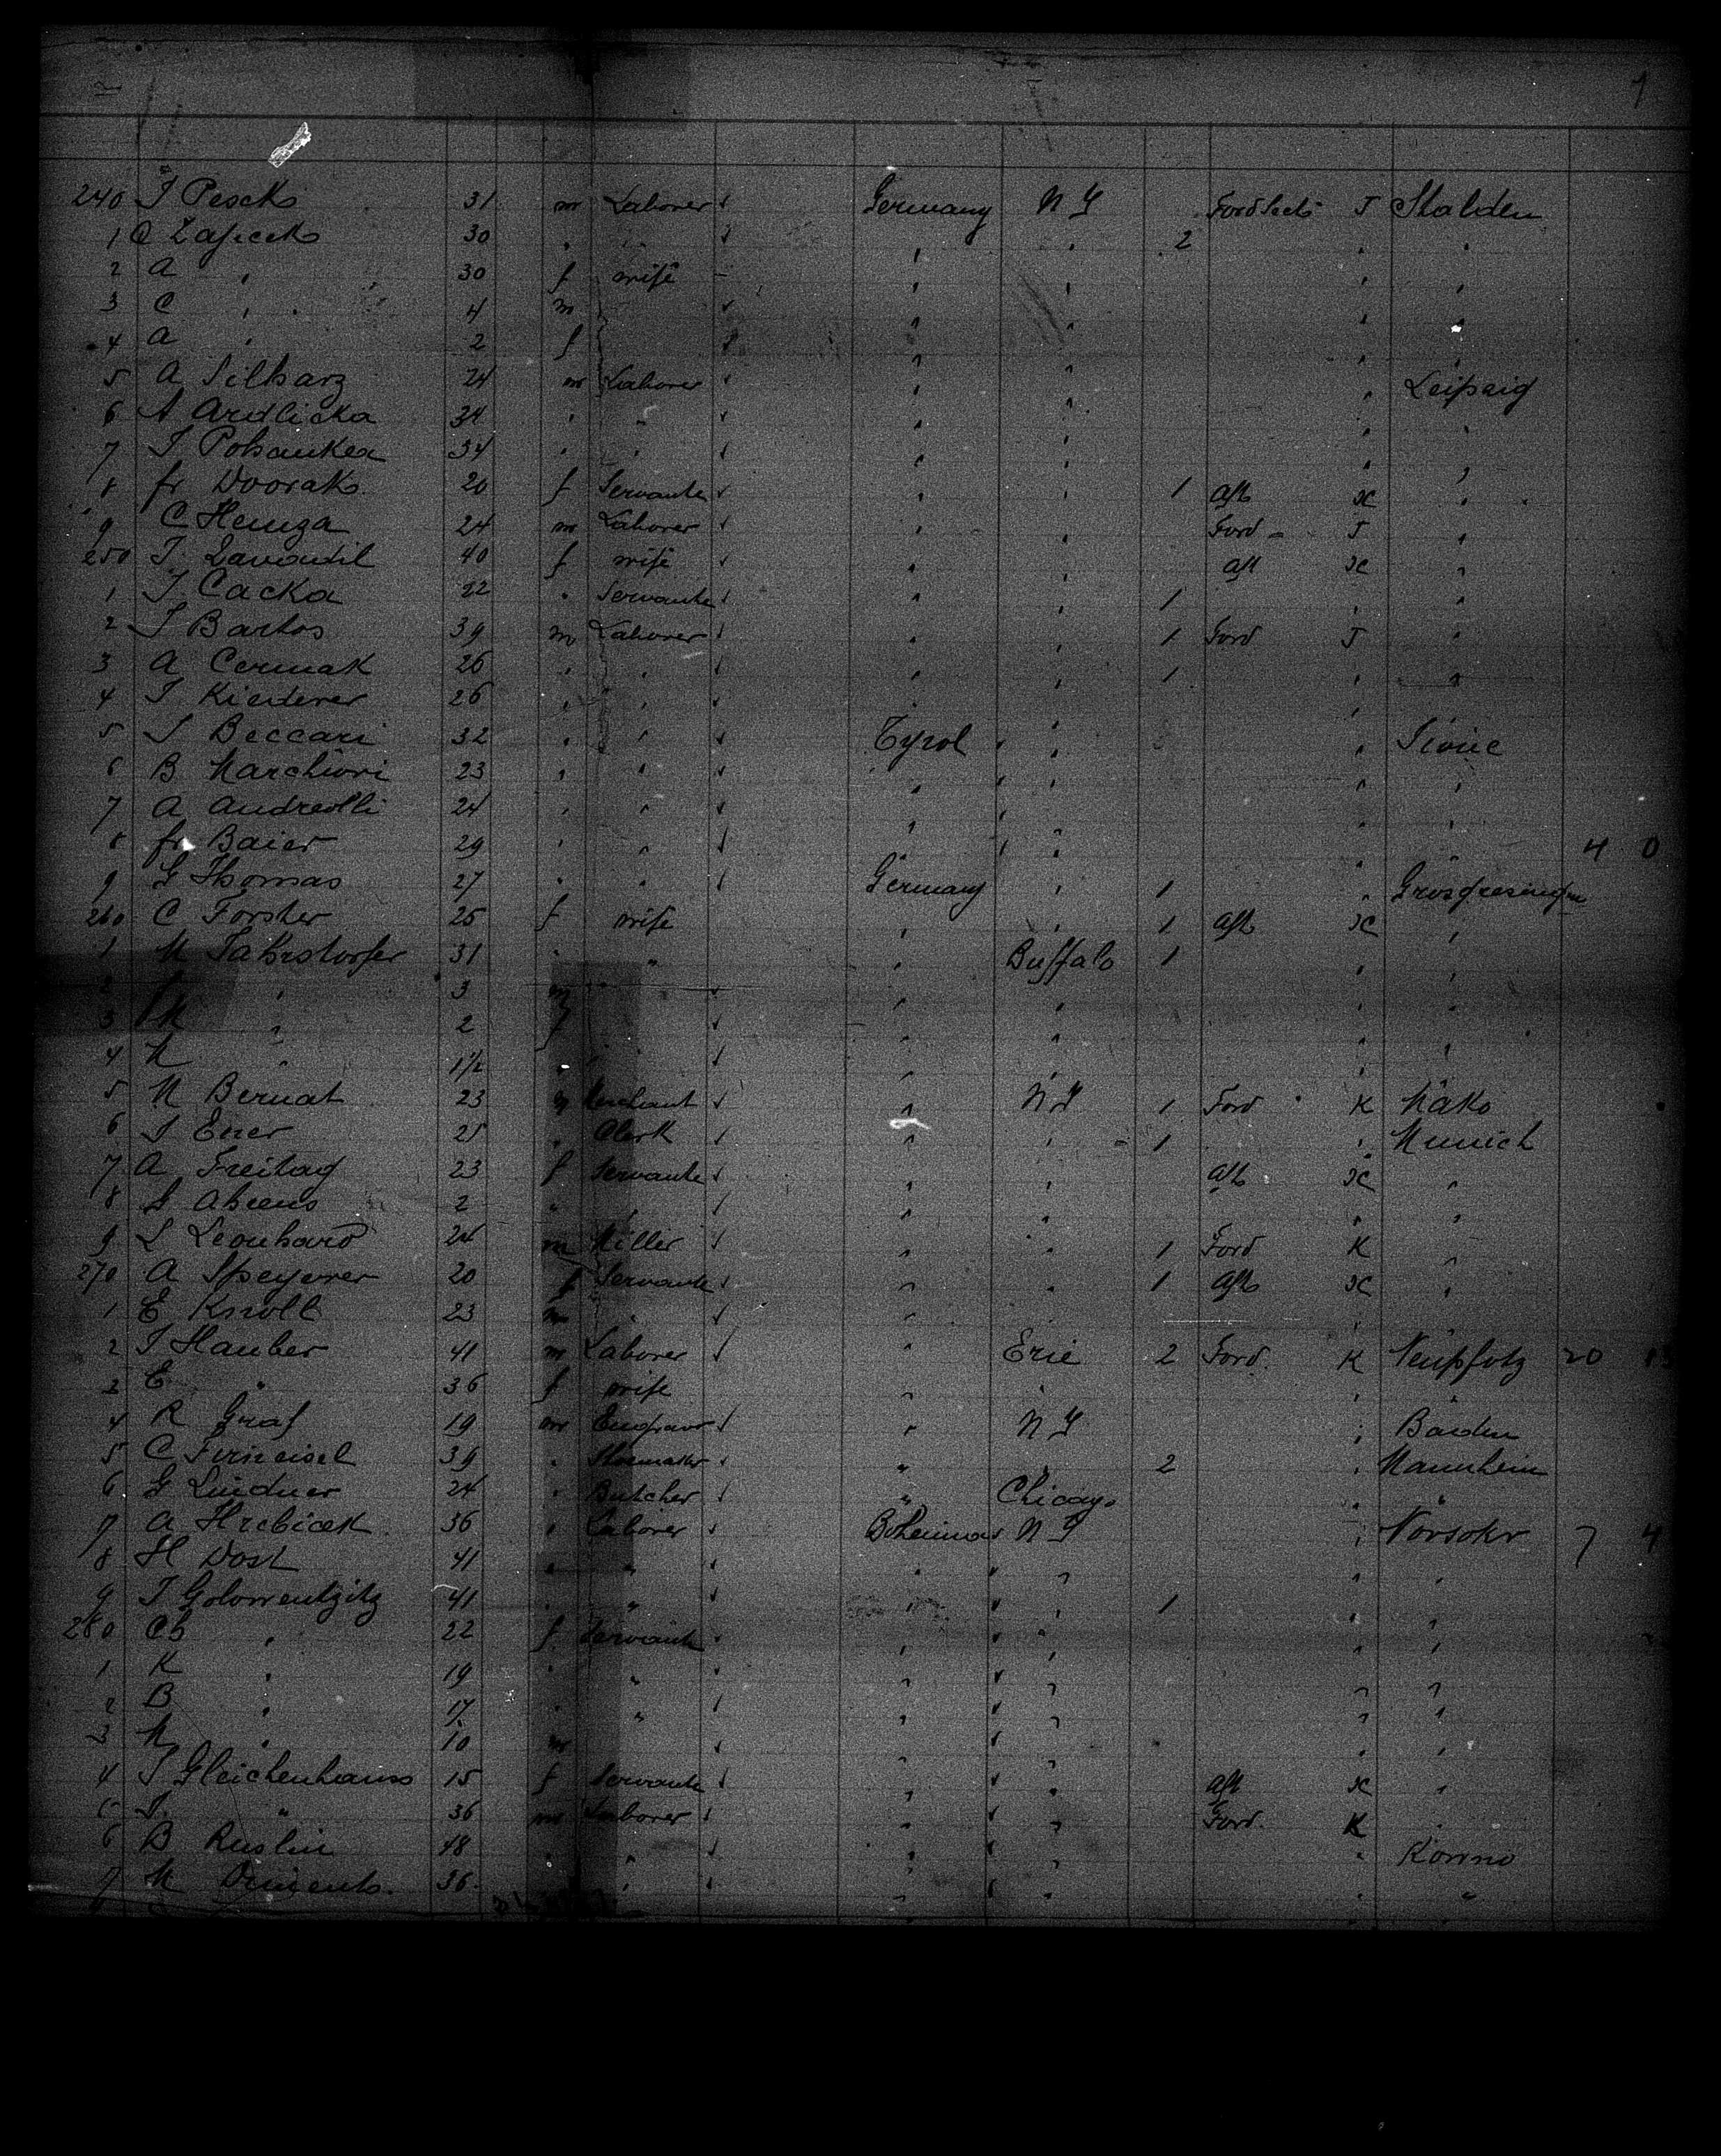 7
240 J Pesek 31 m Laborer √ Germany N Y Ford Sect J Stalden
1 C Zajicek 30 " " √ " " 2 " "
2 A " 30 f wife – " " " "
3 C " 4 m √ " " " "
4 A " 2 f √ " " " "
5 A Silharz 24 m Laborer √ " " " Leipzig
6 A Ardlicka 34 " " √ " " " "
7 J Pohanka 34 " " √ " " " "
8 fr Dvorak 20 f Servante √ " " 1 Aft K "
9 C Hemza 24 m Laborer √ " " Ford J "
250 J. 40 f wife √ " " Aft K "
1 J Cacka 22 " Servante √ " " 1 " "
2 J Bartos 39 m Laborer √ " " 1 Ford J "
3 A Cermak 26 " " √ " " 1 " "
4 J Kiederer 26 " " √ " " " "
5 S Beccari 32 " " √ Tyrol √ " "
6 B Marchiori 23 " " √ " " " "
7 A Andreolli 24 " " √ " " " "
8 fr Baier 29 " " √ " " " " 4 0
9 G Thomas 27 " " √ Germany " 1 "
260 C Forster 25 f wife " " 1 Aft K "
1 M Fahrstorfer 31 " " " Buffalo 1 " "
2 " 3 m √ " " " "
3 M " 2 f √ " " " "
4 M " 1 1/2 " √ " " " "
5 M Bernat 23 m Merchant √ " N Y 1 Ford K Mako
6 J Erer 25 " Clerk √ " " 1 " Munich
7 A Freitag 23 f Servante √ " " Aft K "
8 G Ahrens 2 " √ " " " "
9 L Leonhard 24 m Miller √ " " 1 Ford K "
270 A Speyerer 20 f Servante √ " " 1 Aft K "
1 E Knoll 23 m " √ " "
2 J Hauber 41 m Laborer √ " Erie 2 Ford. K Neupfotz 20
3 E " 36 f wife " " " "
4 R Graf 19 m Engraver √ " N Y " Baden
5 C Firneisel 39 " Shoemaker √ " " 2 " Mannheim
6 G Lindner 24 " Butcher √ " Chicago " "
7 A Hrebicek 36 " Laborer √ Bohemia √ N Y " 7 4
8 H Dost 41 " " √ " √ " " "
9 J Golowentzitz 41 " " √ " √ " 1 " "
280 Ch " 22 f Servante √ " √ " " "
1 K " 19 " " √ " √ " " "
2 B " 17 " " √ " √ " " "
3 M " 10 m √ " √ " " "
4 J Gleichenhauss 15 f Servante √ " √ " Aft K "
5 J. " 36 m Laborer √ " √ " Ford. K "
6 B Ruslin 48 " " √ " √ " " Kowno
7 M 36 " " √ " " " "